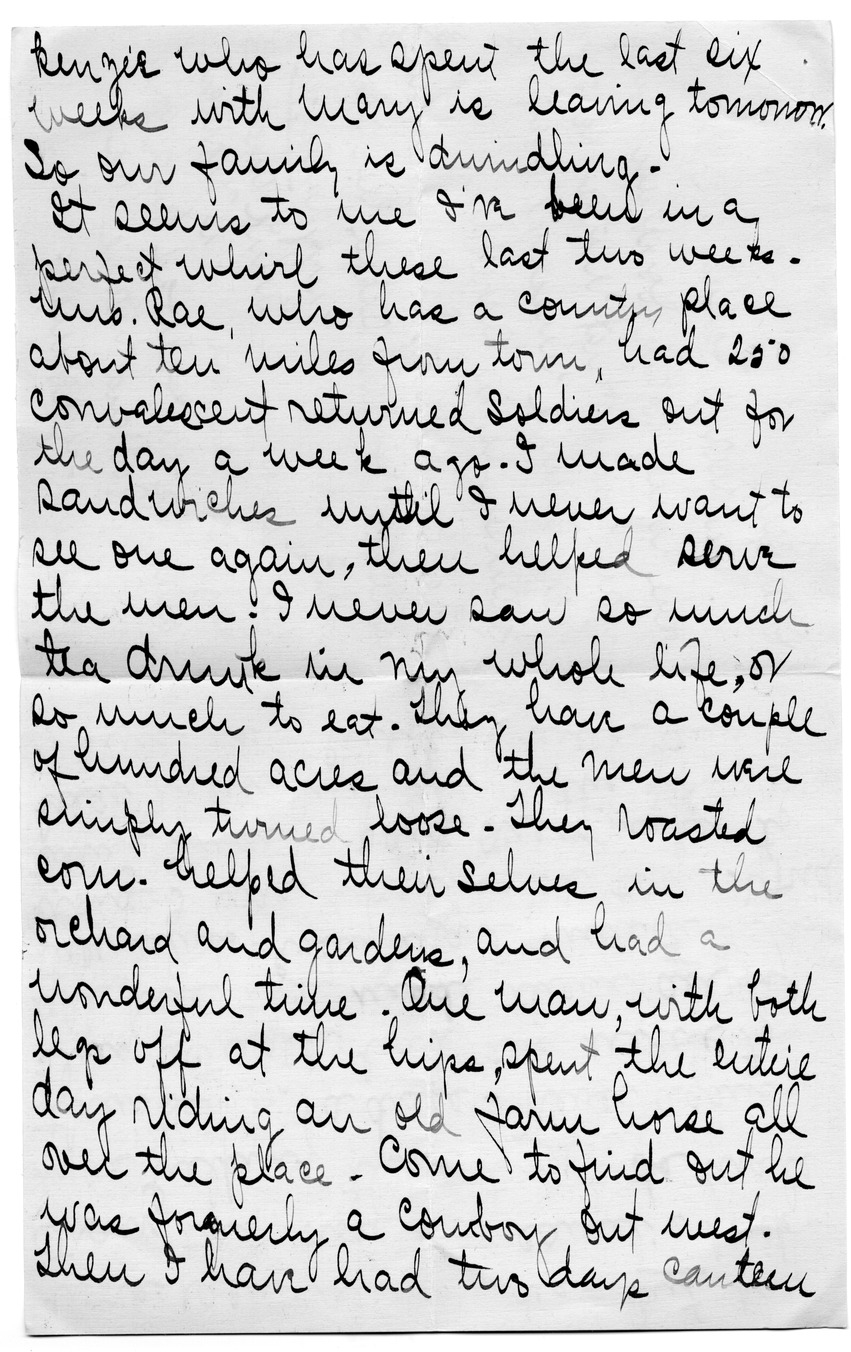 kenzie who has spent the last six
weeks with Mary is leaving tomorrow.
So our family is dwindling.
It seems to me I've been in a
perfect whirl these last two weeks.
Mrs. Rae, who has a country place
about ten miles from town, had 250
convalescent returned soldiers out for
the day a week ago. I made
sandwiches until I never want to
see one again, then helped serve
the men. I never saw so much
tea drunk in my whole life, or
so much to eat. They have a couple
of hundred acres and the men were
simply turned loose. They roasted
corn. helped their selves in the
orchard and gardens, and had a
wonderful time. One man, with both
legs off at the hips, spent the entire
day riding an old farm horse all
over the place. Come to find out he
was formerly a cowboy out west.
Then I have had two days canteen